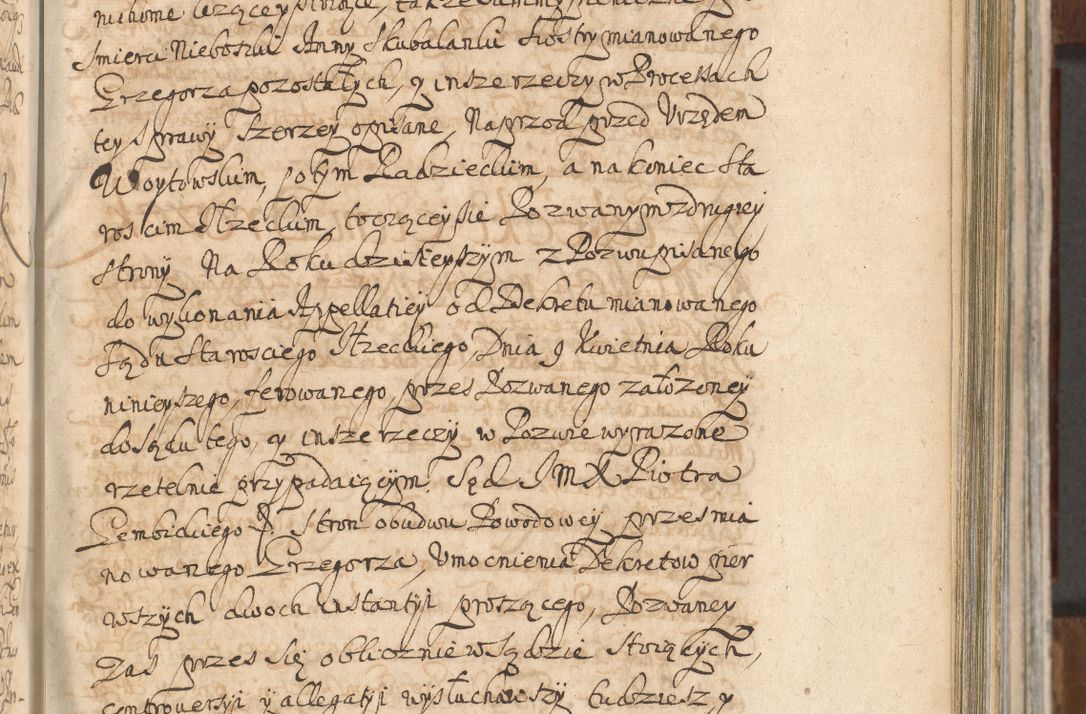 śmierci Nieboszki Anny Skubalanki Siostry mianowanego
Grzegorza pozostałych, y insze rzeczy w Processach
tey sprawy szerzey opisane, Naprzod przed Urzędem
Woytowskim, potym Radzieckim, a na koniec Sta
roscim Rzeckim, toczącey sie Pozwanym z drugiey
strony Na Roku dzisieyszym z Pozwu pisanego
do wykonania Appellatiey od Dekretu mianowanego
Sądu Starosciego Rzeckiego, Dnia 9 Kwietnia Roku
ninieyszego, ferowanego, przes Pozwanego załozoney
do Sądu tego, y insze rzeczy w Pozwie wyrazone
rzetelnie przypadaiącym. Sąd J M X Piotra
Gembickiego P. Stron obudwu Powodowey przes mia
nowanego Grzegorza, Umocnienia Dekretow pier
wszych dwoch instantyi proszącego, Pozwaney
zas przes się oblicznie w Sądzie stoiących,
controversyi y allegatyi wysłuchawszy tudziesz y